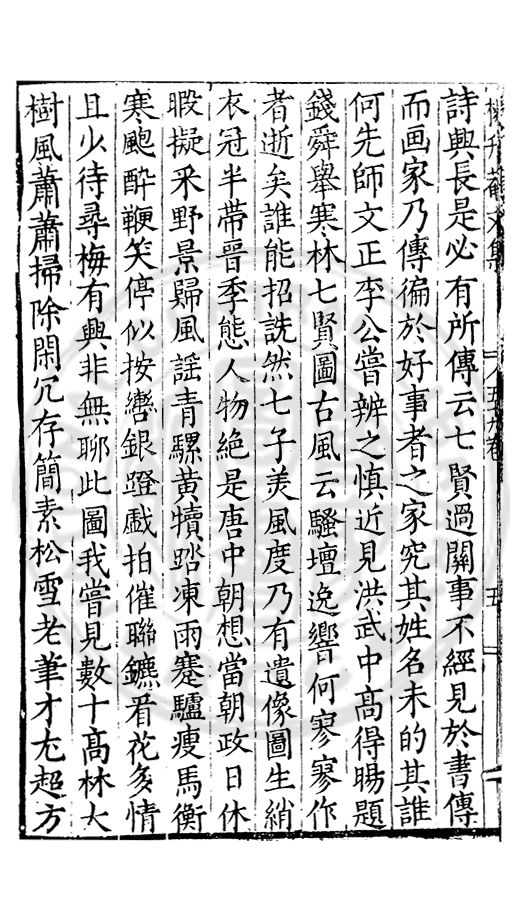 詩興長是必有所傳云七賢過關事不經見於書傳
而画家乃傳徧於好事者之家究其姓名未的其誰
何先師文正李公嘗辨之慎近見洪武中高得暘題
錢舜舉寒林七賢圖古風云騷壇逸響何寥寥作
者逝矣誰能招詵然七子美風度乃有遺像圖生綃
衣冠半帶晉季態人物絶是唐中朝想當朝政日休
暇擬釆野景歸風謡青騾黃犢踏凍雨蹇驢瘦馬衡
寒颷酔鞭笑停似按轡銀蹬戯拍催聯鑣看花多情
且少待尋梅有興非無聊此圖我嘗見數十高林大
樹風蕭蕭掃除閑冗存簡素松雪老筆才尤超方